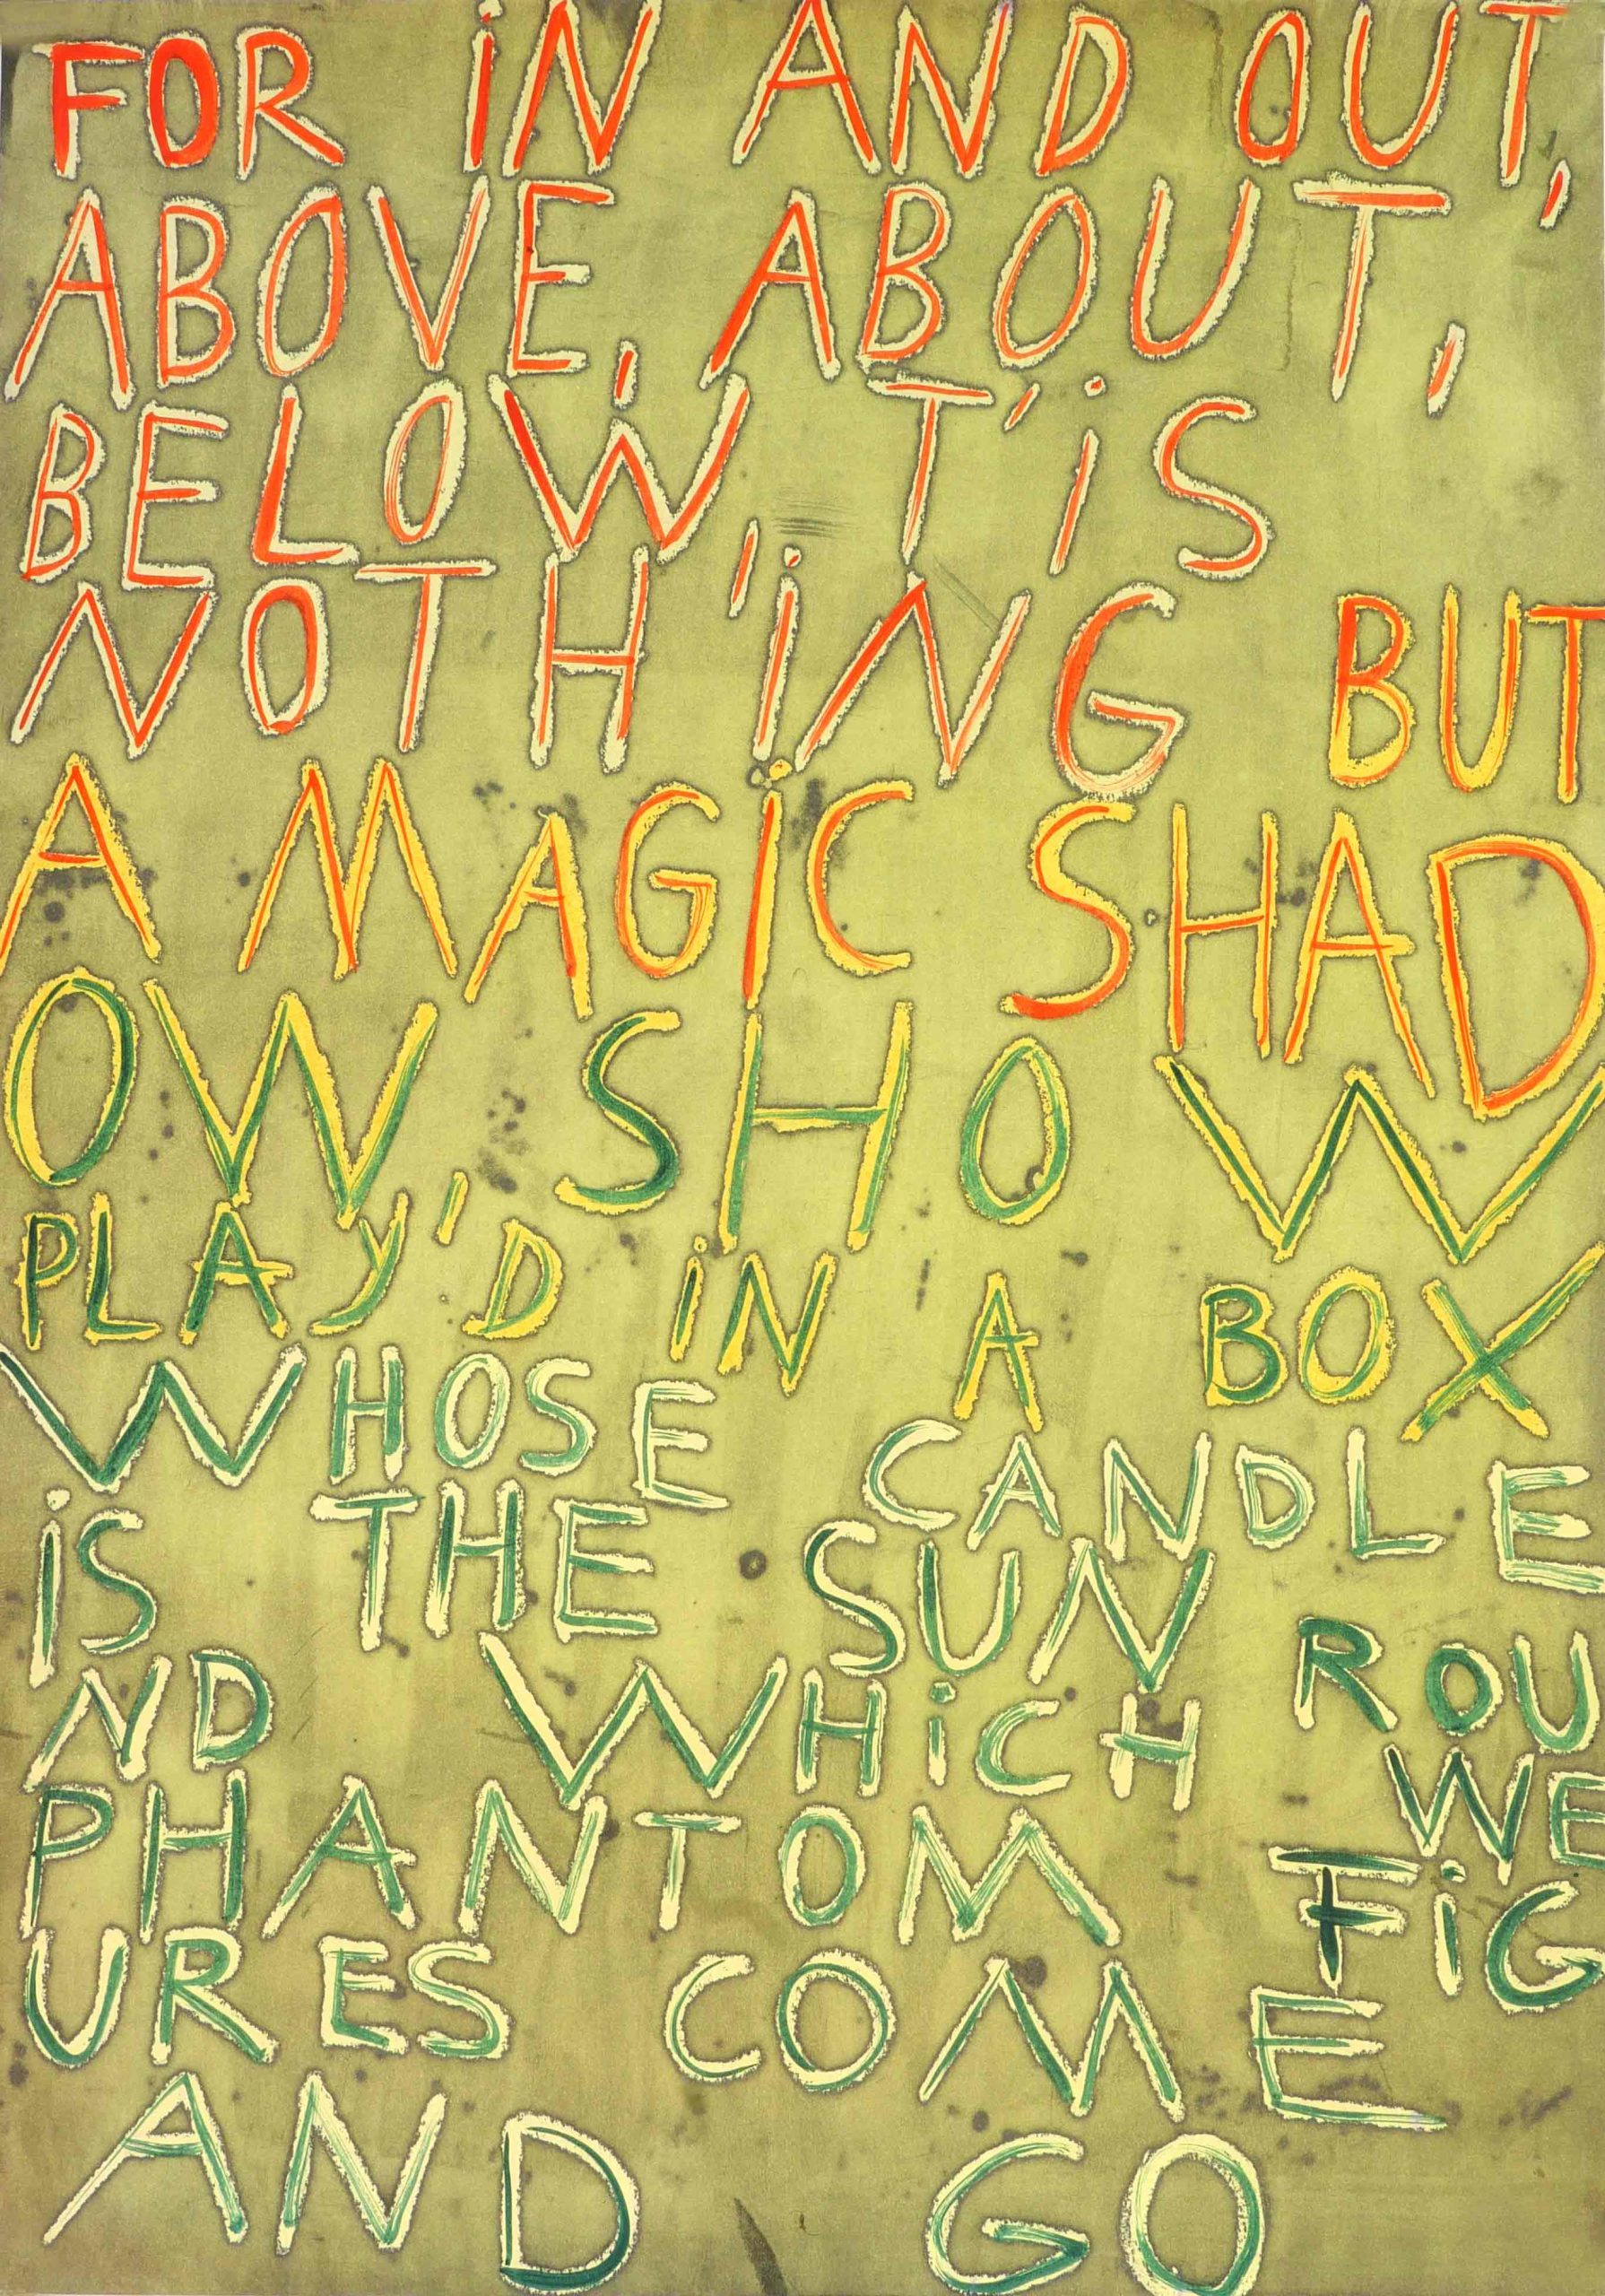 FOR iN AND OUT,
ABOVE, ABOUT,
BELOW, T'iS
NOTHiNG BUT
A MAGiC SHAD
OW, SHOW
PLAY'D iN A BOX
WHOSE CANDLE
iS THE SUN ROU
ND WHiCH WE
PHANTOM FiG
URES COME
AND GO